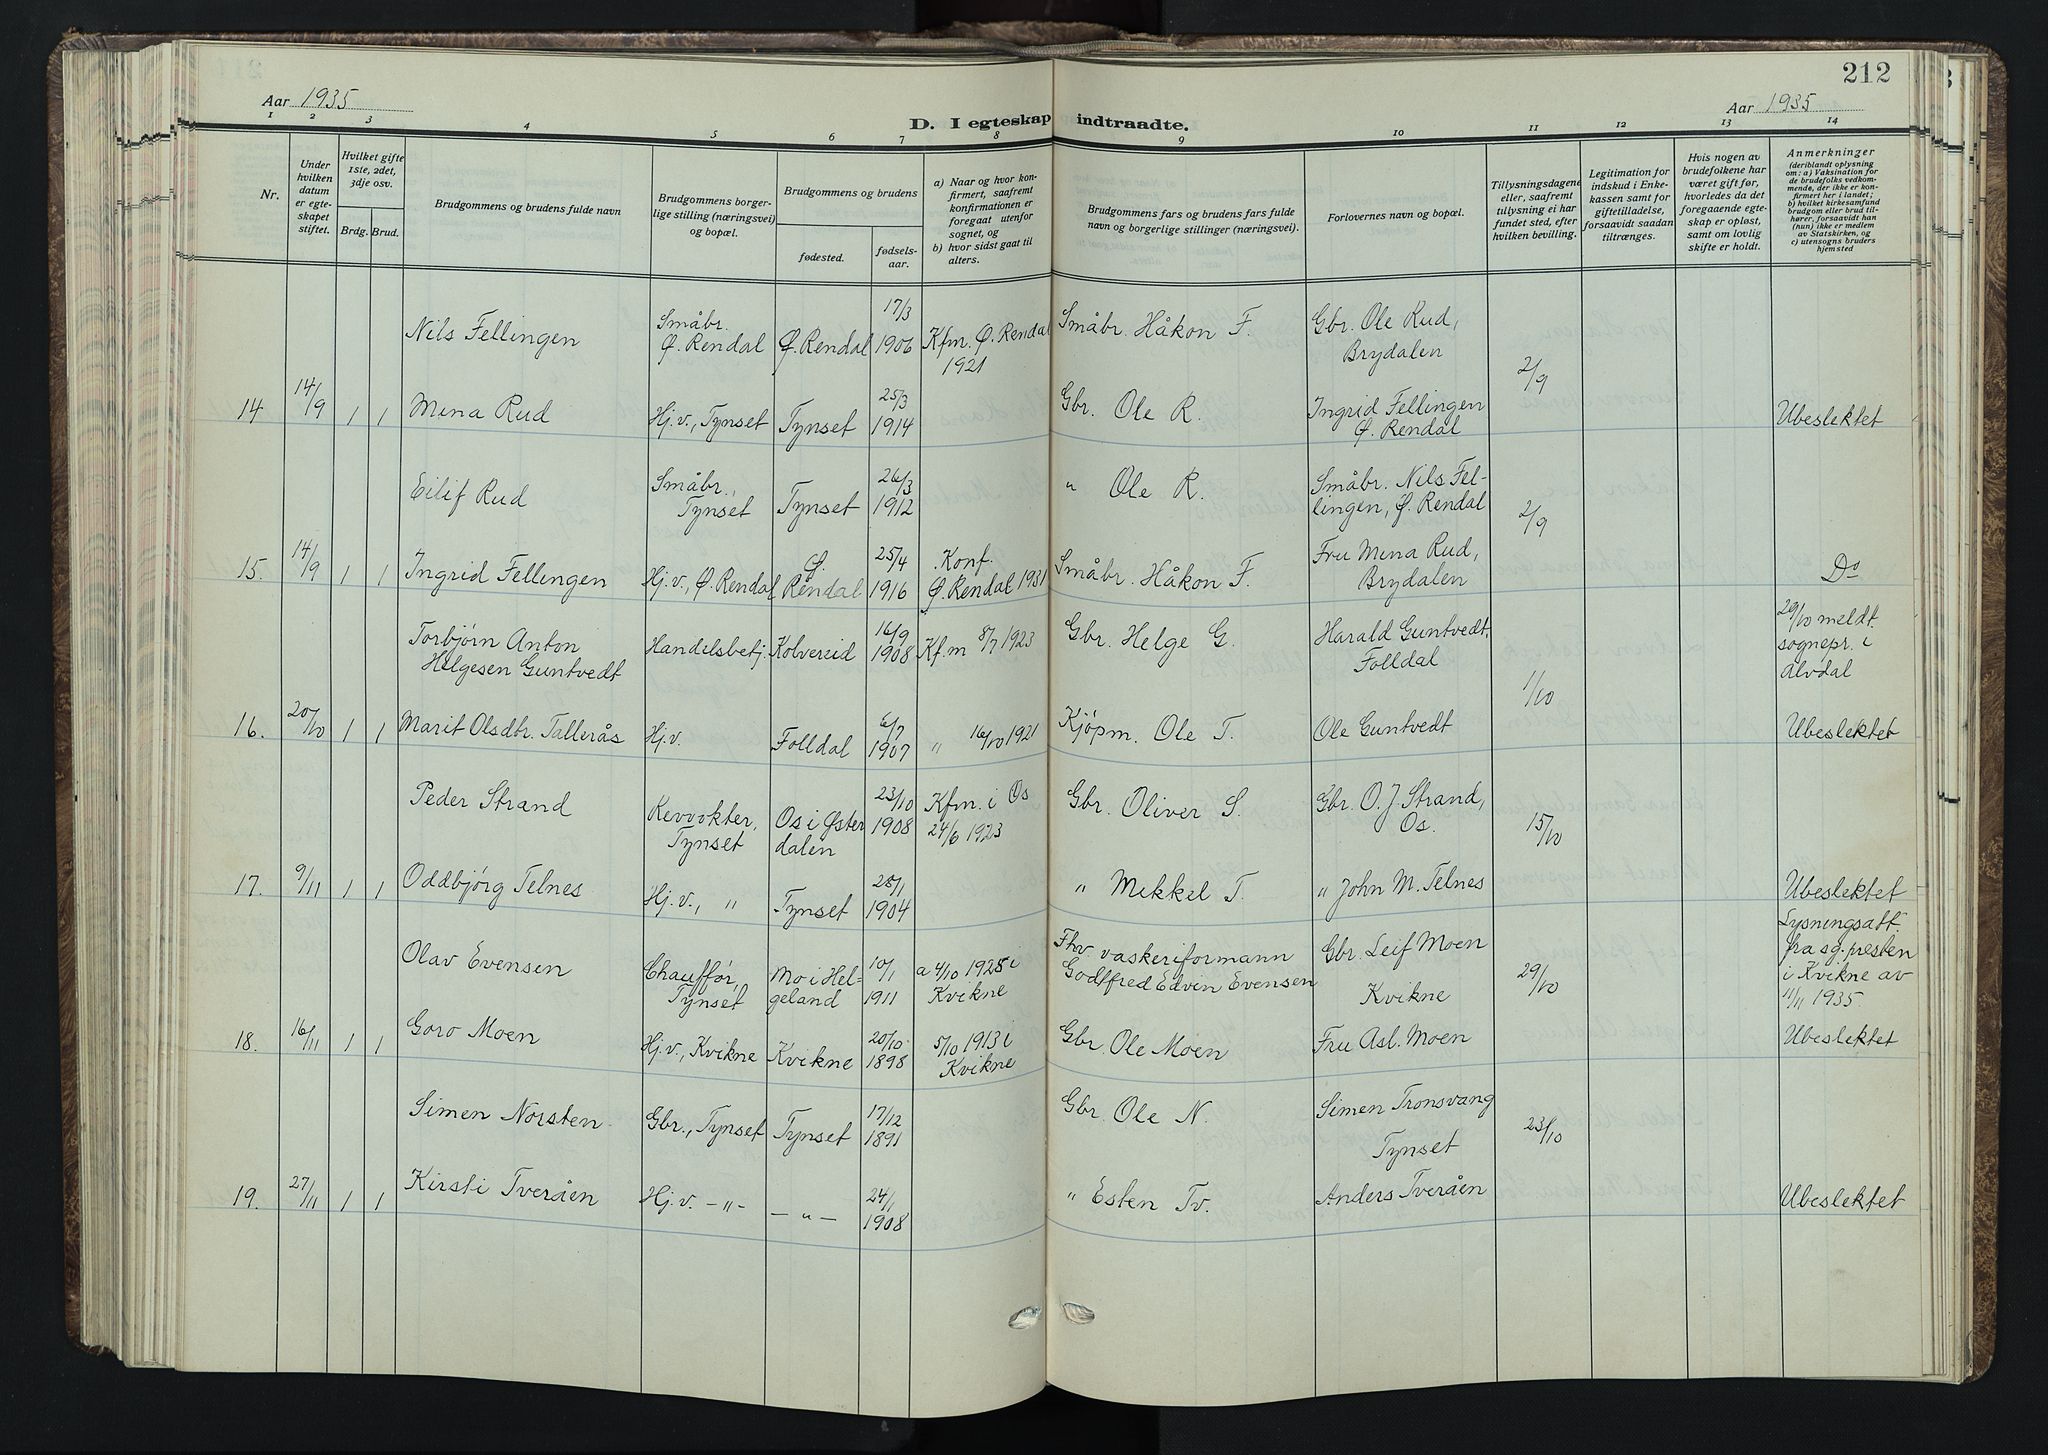 212
Aar 1935
Aar 1935
D. I egteskap indtraadte.
1 2 3 4 5 6 7 8 9 10 11 12 13 14
Nr.
Under
hvilken
datum
er egte-
skapet
stiftet.
Hvilket gifte
1ste, 2det,
3dje osv.
Brdg. Brud.
Brudgommens og brudens fulde navn
Brudgommens borger-
lige stilling (næringsvei)
og bopæl.
Brudgommens og brudens
fødested.
fødsels-
aar.
a) Naar og hvor kon-
firmert, saafremt
konfirmationen er
foregaat utenfor
sognet, og
b) hvor sidst gaat til
alters.
Brudgommens fars og brudens fars fulde
navn og borgerlige stillinger (næringsvei).
Forlovernes navn og bopæl.
Tillysningsdagene
eller, saafremt
tillysning ei har
fundet sted, efter
hvilken bevilling.
Legitimation for
indskud i Enke-
kassen samt for
giftetilladelse,
forsaavidt saadan
tiltrænges.
Hvis nogen av
brudefolkene har
været gift før,
hvorledes da det
foregaaende egte-
skap er opløst,
samt om lovlig
skifte er holdt.
Anmerkninger
(deriblandt oplysning
om: a) Vaksination for
de brudefolks vedkom-
mende, der ikke er kon-
firmert her i landet;
b) hvilket kirkesamfund
brudgom eller brud til-
hører, forsaavidt han
(hun) ikke er medlem
av Statskirken, og
c) utensogns bruders
hjemsted
Nils Fellingen Småbr. Ø. Rendal Ø. Rendal 17/3 1906 Kfm. Ø. Rendal 1921 Småbr. Håkon F. Gbr. Ole Rud, Brydalen
14 14/9 1 1 Mina Rud Hj.v., Tynset Tynset 25/3 1914 Gbr. Ole R. Ingrid Fellingen Ø. Rendal 2/9 Ubeslektet
Eilif Rud Småbr., Tynset Tynset 26/3 1912 " Ole R. Småbr. Nils Fel-
lingen, Ø. Rendal
15. 14/9 1 1 Ingrid Fellingen Hj.v., Ø. Rendal Ø. Rendal 25/4 1916 Konf. Ø. Rendal 1931 Småbr. Håkon F. Fru Mina Rud, Brydalen 2/9 Do
Torbjørn Anton
Helgesen Guntvedt Handelsbetj. Kolvereid 16/9 1908 Kfm 8/7 1923 Gbr. Helge G. Harald Guntvedt, Folldal 29/10 meldt
sognepr. i
Alvdal
16. 20/10 1 1 Marit Olsdtr. Tallerås Hj.v. Folldal 6/7 1907 " 16/10 1921 Kjøpm. Ole T. Ole Guntvedt 1/10 Ubeslektet
Peder Strand Revvokter, Tynset Os i Øster
dalen 23/10 1908 Kfm. i Os
24/6 1923 Gbr. Oliver S. Gbr. O. J. Strand, Os.
17. 9/11 1 1 Oddbjørg Telnes Hj.v., " Tynset 28/1 1904 " Mikkel T. " John M. Telnes 15/10 Ubeslektet
Olav Evensen Chauffør, Tynset Mo i Hel-
geland 10/1 1911 a 4/10 1925 i
Kvikne Fhv. vaskeriformann
Godtfred Edvin Evensen Gbr. Leif Moen
Kvikne 29/10 Lysningsatt.
fra sg.presten
i Kvikne av
11/11 1935.
18. 16/11 1 1 Goro Moen Hj.v., Kvikne Kvikne 20/10 1898 5/10 1913 i
Kvikne Gbr. Ole Moen Fru Asl. Moen Ubeslektet
Simen Norsten Gbr., Tynset Tynset 17/12 1891 Gbr. Ole N. Simen Tronsvang
Tynset 23/10
19. 27/11 1 1 Kirsti Tveråen Hj.v. -"- -"- 24/1 1908 " Esten Tv. Anders Tveråen Ubeslektet